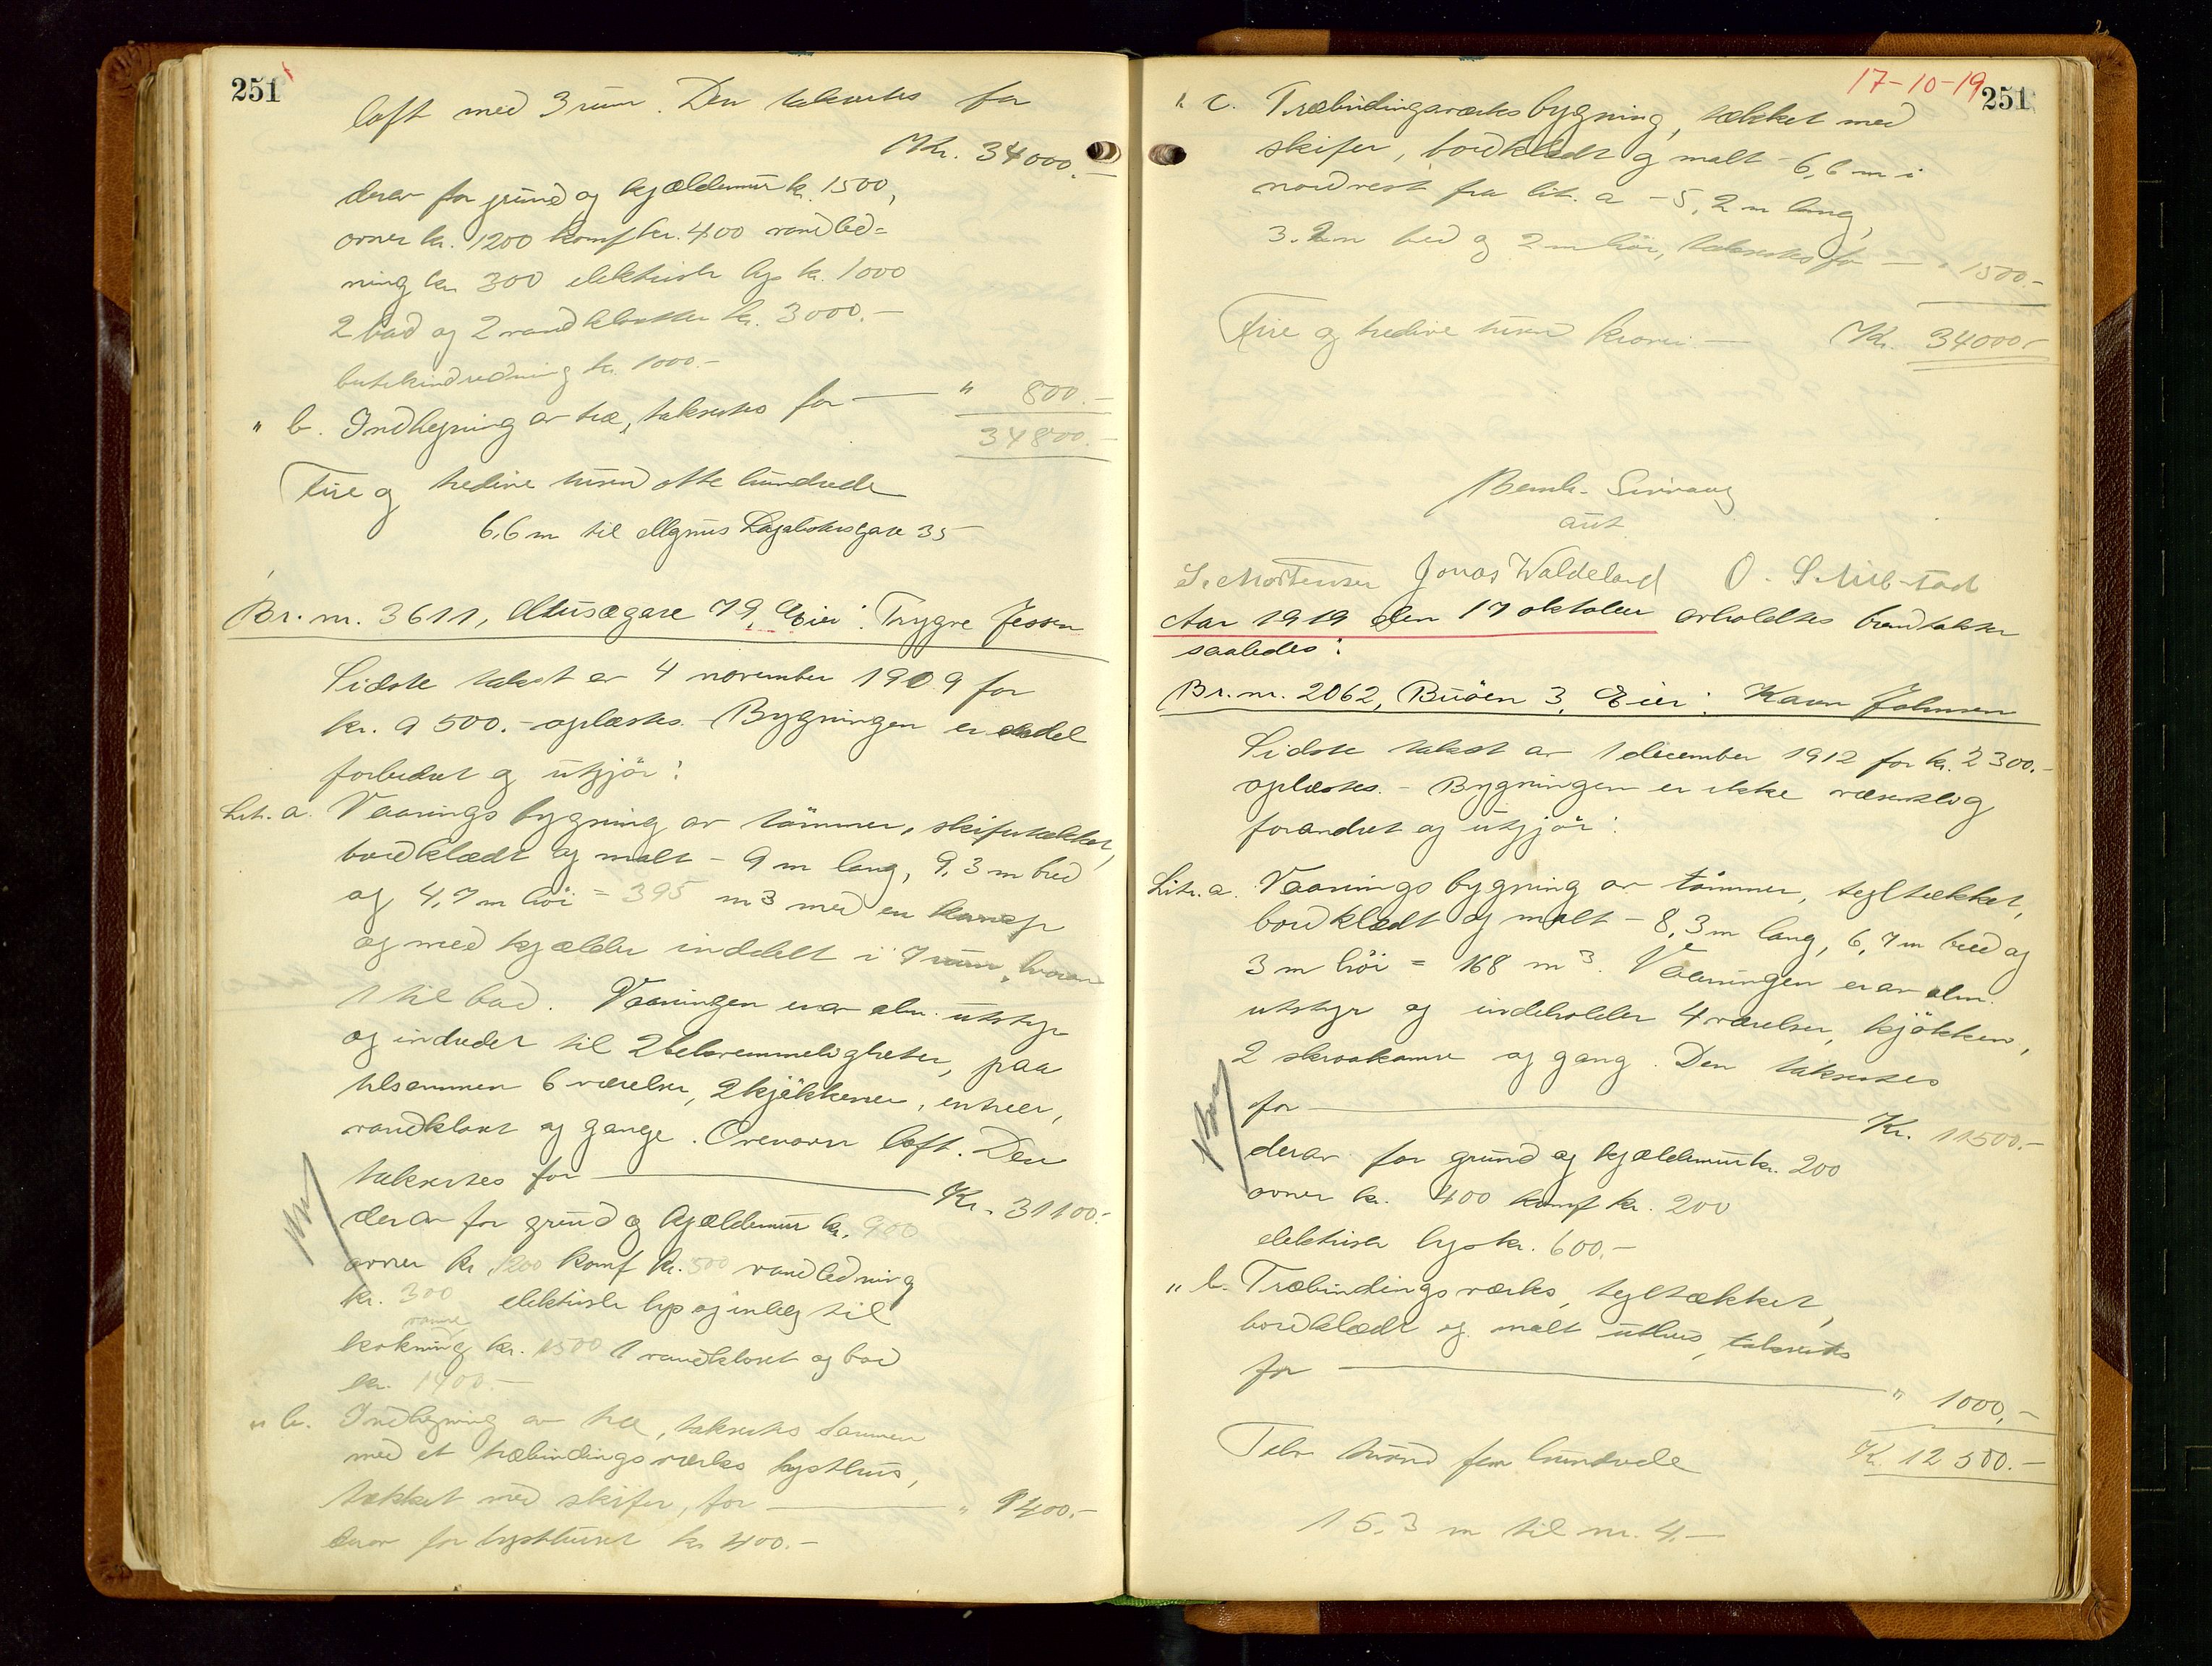 251
loft med 3 rum. Den takseres for
Kr. 34000.-
derav for grund og kjældermur kr. 1500,
ovner kr. 1200 komf kr. 400 vandled=
ning kr 300 elektrisk lys kr. 1000
2 bad og 2 vandklosetter kr. 3000.-
butikindredning kr. 1000.-
" b. Indhegning av træ, takseres for — " 800.-
34800.-
Fire og tredive tusen otte hundrede
6,6 m til Magnus Lagabøtersgate 35
Br. nr. 3611, gate 79, Eier: Trygve Jessen
Sidste takst av 4 november 1909 for
kr. 9500.- oplæstes. Bygningen er endel
forbedret og utgjör:
Litr. a. Vaanings bygning av tömmer, skifertækket,
bordklædt og malt - 9 m lang, 9,3 m bred
og 4,7 m höi = 395 m3 med en karnap
og med kjælder inddelt i 7 rum, hvorav
1 til bad. Vaaningen er av alm. utstyr
og indredet til 2 bekvemmeligheter, paa
tilsammen 6 værelser, 2 kjökkener, entreer,
vandkloset og gange. Ovenover loft. Den
takseres for — Kr. 31100.-
derav for grund og kjældermur kr. 900
ovner kr 1200 komf kr. 500 vandledning
kr. 300 elektrisk lys og inlæg til
kokning kr. 1500 1 vandkloset og bad
kr. 1400.-
" b. Indhegning av træ, takseres sammen
med et træbindingsverks lysthus,
tækket med skifer, for — " 1400.-
derav for lysthuset kr 400.-
17-10-19
251
" c. Træbindingsverks bygning, tækket med
skifer, bordklædt og malt - 6,6 m i
nordvest fra lit. a - 5,2 m lang,
3.2 m bred og 2 m höi, takseres for — " 1500.-
Fire og tredive tusen kroner — Kr. 34000.-
Bernh.
aut
S. Mortensen Jonas Waldeland O. S.
Aar 1919 den 17 oktober avholdtes brandtakster
saaledes:
Br. nr. 2062, Buöen 3, Eier: Karen Johnsen
Sidste takst av 1 december 1912 for kr. 2300.-
oplæstes. - Bygningen er ikke væsentlig
forandret og utgjör:
Litr. a. Vaanings bygning av tömmer, tegltækket,
bordklædt og malt - 8,3 m lang, 6,7 m bred og
3 m höi = 168 m3. Vaaningen er av alm.
utstyr og indeholder 4 værelser, kjökken,
2 skraakamre og gang. Den takseres
for — Kr. 11500.-
derav for grund og kjældermur kr. 200
ovner kr. 400 komf kr. 200
elektrisk lys kr. 600.-
" b. Træbindingsverks, tegltækket,
bordklædt og malt uthus, takseres
for — " 1000.-
Tolv tusind fem hundrede Kr. 12500.-
15.3 m til nr. 4.-